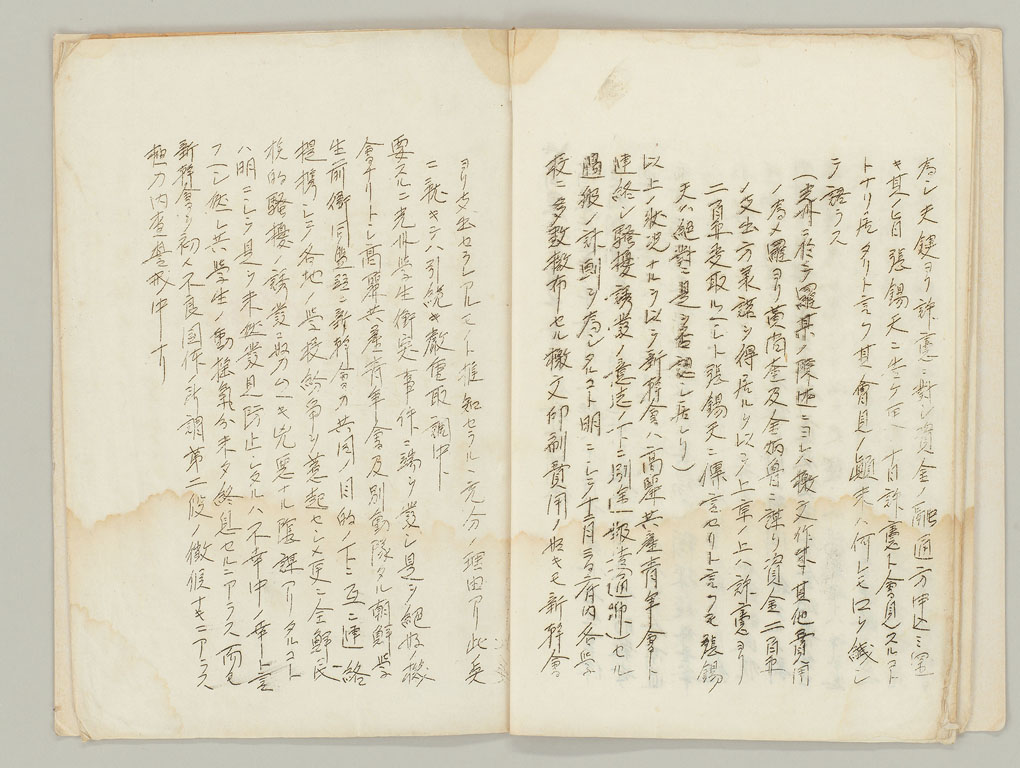 為シ夫鍵ヨリ許憲ニ對シ資金ノ融通方申込ミ置
キ其ノ旨張錫天ニ告ケ 十日許憲ト會見スルコト
トナリ居タリト言フ其會見ノ顛末ハ何レモ口ヲ緘シ
テ語ラス
(京件ニ於テ羅某ノ陳述ニヨレハ檄文作成其他費用
ノ為メ羅ヨリ黄尚奎及金 ニ謀リ資金二百円
ノ支出方承諾ヲ得居ルヲ以ソノ上京ノ上ハ許憲ヨリ
二百円受取ルヘシト張錫天ニ傳言セリト言フモ張錫
天ハ絶對ニ是ヲ否認シ居レリ)
以上ノ狀況ナルヲ以テ新幹會ハ高麗共產青年會ト
連絡シ騷擾誘發ノ意志ノ下ニ別 報告通 セル
過般ノ計劃ヲ為シタルコト明ニシテ十二月三日府內各學
校ニ多數撒布セル檄文印刷費用ノ如キモ新幹會
ヨリ支出セラレアルモノト推知セラルヽ充分ノ理由アリ此矣
ニ就キテハ引続キ嚴重取調中ナリ
要スルニ光州學生衝突事件ニ端ヲ發シ是ヲ絶好機
會ナリトシ高麗共產青年會及別動隊タル朝鮮學
生前衛同盟並ニ新幹會カ共同ノ目的ノ下ニ互ニ連絡
提携シテ各地ノ學校紛争ヲ惹起セシメ更ニ全鮮民
族的騷擾ノ誘發ニ努ムヘキ兇惡ナル陰謀アリタルコト
ハ明ニシテ是ヲ未然發見防止シタルハ不幸中ノ幸ト言
フヘシ然レ共學生ノ動揺氣分未タ終息セルニアラス而モ
新幹會ヲ初メ不良團体ノ所謂第二段ノ徴候ナキニアラス
極力內查警戒中ナリ